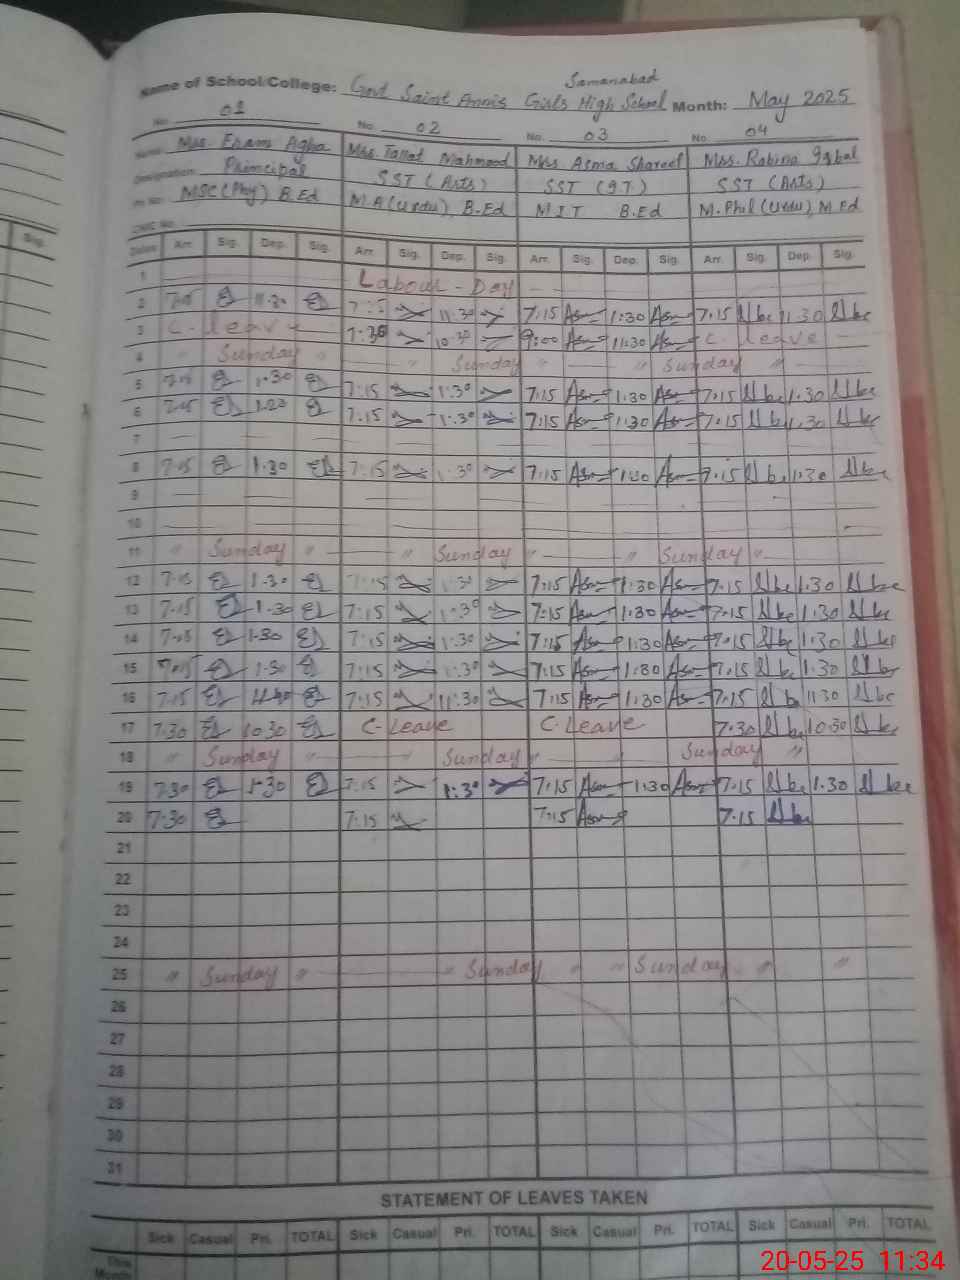 Name of School/College: Govt Saint Annis Girls High School Samanabad Month: May 2025
No. 01 No. 02 No. 03 No. 04
Name Mrs. Eram Agha Mrs. Tallat Mahmood Mrs Asma Shareef Mrs. Robina Iqbal
Designation Principal SST (Arts) SST (I.T) SST (Arts)
MSC (Phy) B.Ed M.A (Urdu), B.Ed M I T B.Ed M.Phil (Urdu), M.Ed
CNIC No.
Dates Arr. Sig. Dep. Sig. Arr. Sig. Dep. Sig. Arr. Sig. Dep. Sig. Arr. Sig. Dep. Sig.
1 Labour - Day
2 11.30 11.30 7:15 1:30 7.15 11.30
3 C. leave 7:30 10.30 9:00 11:30 C. leave
4 " Sunday " Sunday " " Sunday "
5 1.30 7:15 1:30 7:15 1:30 7.15 1.30
6 7:15 1:30 7:15 1:30 7.15 1.30
7
8 7.15 1.30 7:15 1:30 7:15 7.15 1.30
9
10
11 " Sunday " " Sunday " " Sunday "
12 7.15 1.30 7:15 1:30 7:15 1:30 7.15 1.30
13 7.15 1.30 7:15 1:30 7:15 1:30 7.15 1.30
14 7.15 1.30 7:15 1:30 7:15 1:30 7.15 1:30
15 7.15 1.30 7:15 1:30 7:15 1:30 7.15 1.30
16 7.15 7:15 11:30 7:15 1:30 7.15 11.30
17 7.30 10.30 C-Leave C-Leave 7.30 10.30
18 " Sunday " Sunday " Sunday "
19 7.30 1.30 7:15 1:30 7:15 1:30 7.15 1.30
20 7.30 7:15 7:15 7.15
21
22
23
24
25 " Sunday " " Sunday " " Sunday " "
26
27
28
29
30
31
STATEMENT OF LEAVES TAKEN
Sick Casual Pri. TOTAL Sick Casual Pri. TOTAL Sick Casual Pri. TOTAL Sick Casual Pri. TOTAL
This Month
Sig.
20-05-25 11:34